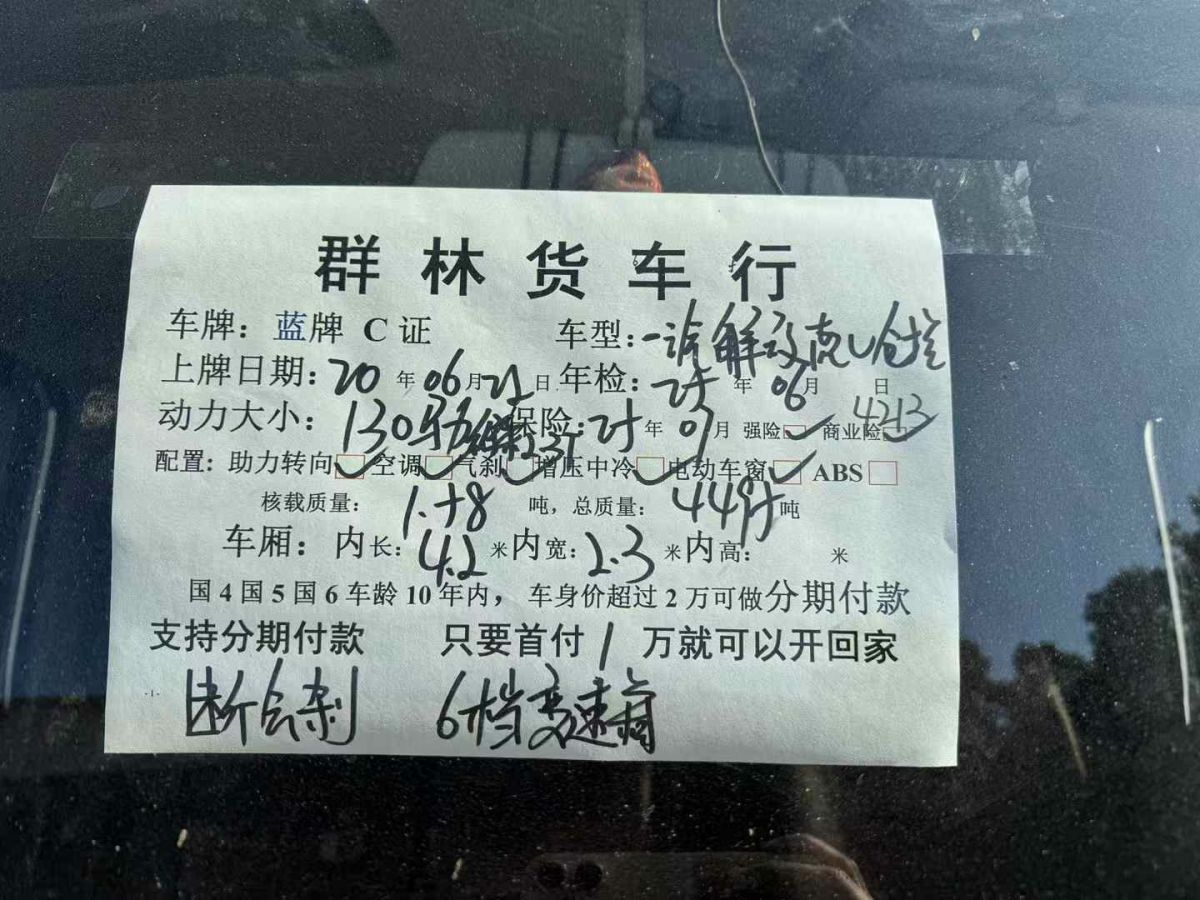 群林货车行
车牌：蓝牌 C 证 车型：一汽解放虎V仓栏
上牌日期：20 年 06 月 22 日 年检：25 年 06 月 日
4213
动力大小：130马力 保险：25 年 07 月 强险 商业险
2.3T
配置：助力转向 空调 气刹 增压中冷 电动车窗 ABS
核载质量：1.58 吨，总质量：4495 吨
车厢：内长：4.2 米 内宽：2.3 米 内高： 米
国 4 国 5 国 6 车龄 10 年内，车身价超过 2 万可做分期付款
支持分期付款 只要首付 1 万就可以开回家
-1-
断气刹 6档变速箱